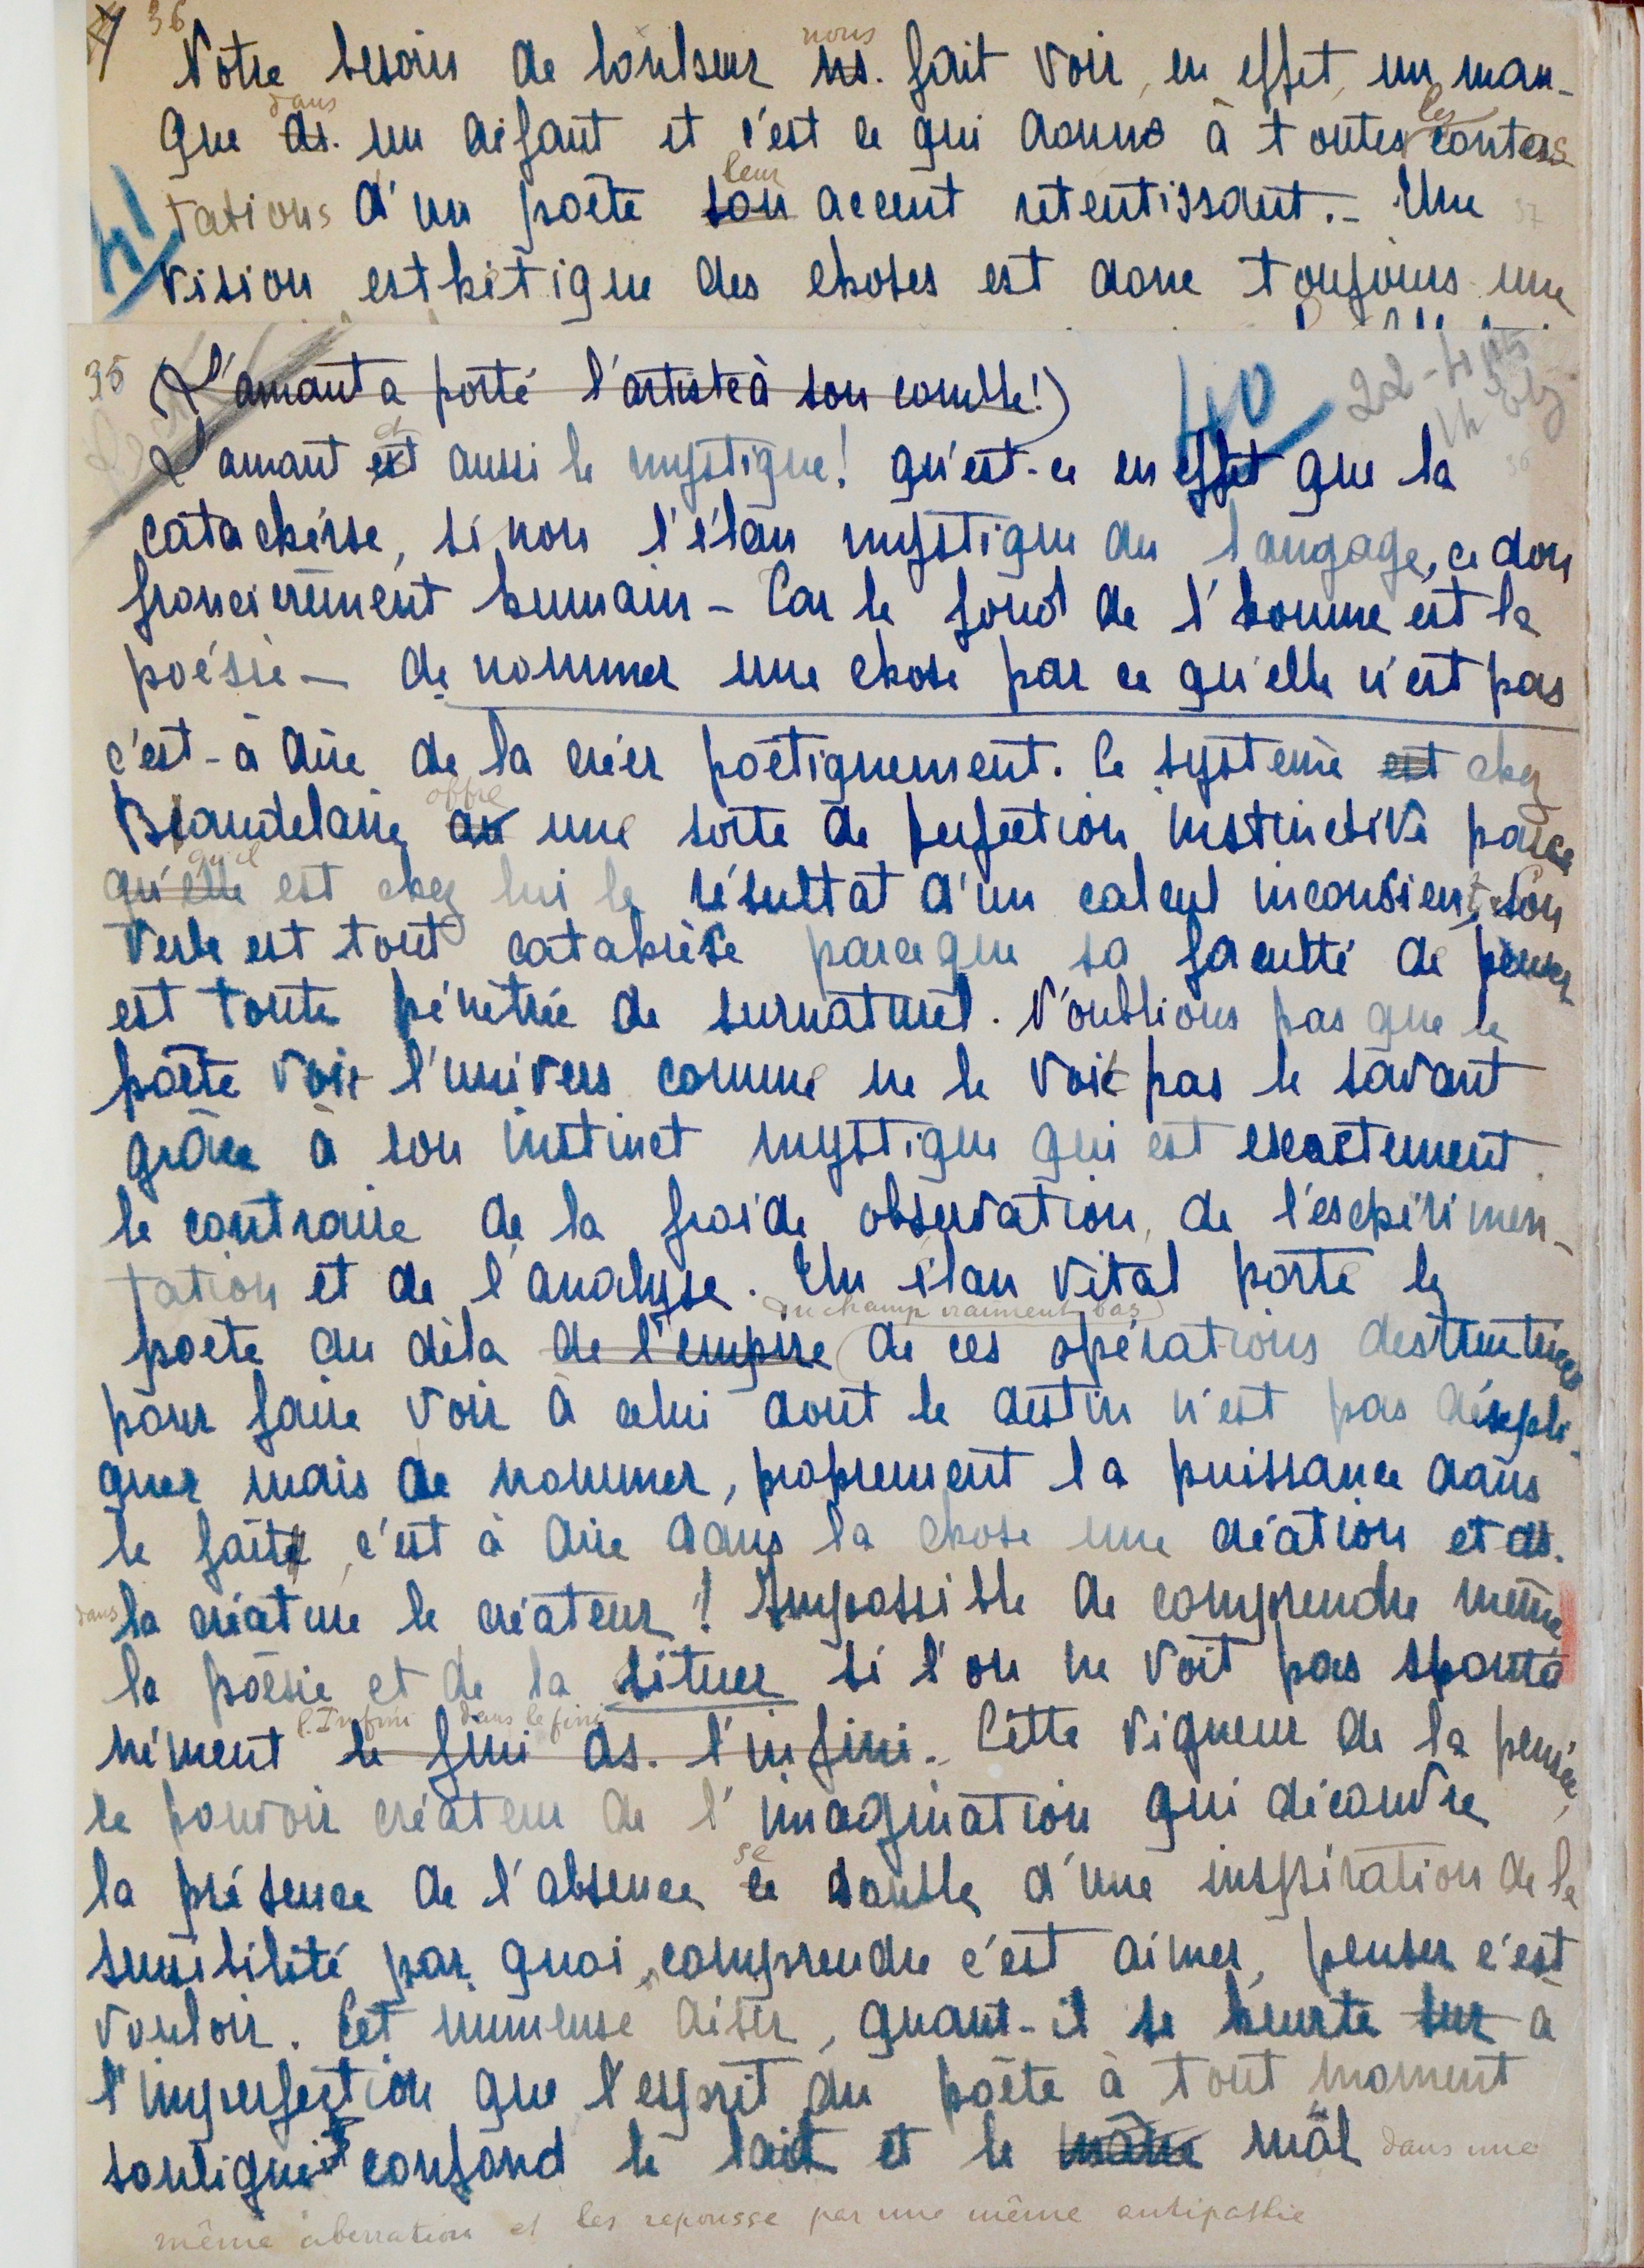 36
Notre besoin de bonheur ns. nous fait voir, en effet, un man-
que ds. dans un défaut et c'est ce qui donne à toutes les contes
tations d'un poète son leur accent retentissant. - Une
41
vision esthétique des choses est donc toujours une
35 (L'amant a porté l'artiste à son comble!)
40
L'amant est et aussi le mystique! qu'est-ce en effet que la
catachérse, si non l'élan mystique du langage, ce don
froncièrement humain - Car le fond de l'homme est la
poésie - de nommer une chose par ce qu'elle n'est pas
c'est-à dire de la créer poétiquement. Ce système est chez
Beaudelaire offre une sorte de perfection instinctive parce
qu'elle qu'il est chez lui le résultat d'un calcul inconscient. Son
verbe est tout catakrèse parceque sa faculté de penser
est toute pénétrée de surnaturel. N'oublions pas que le
poète voit l'univers comme ne le voit pas le savant
grâce à son instinct mystique qui est exactement
le contraire de la froide observation, de l'expérimen-
tation et de l'analyse. Un élan vital porte le
poète au dèla de l'empire (du champ vraiment bas) de ces opérations destructrices
pour faire voir à celui dont le destin n'est pas d'expli-
quer mais de nommer, proprement la puissance dans
le fait, c'est à dire dans la chose une création et ds.
dans la créature le créateur! Impossible de comprendre même
la poésie et de la situer si l'on ne voit pas sponta
nément le fini ds. l'infini l'Infini dans le fini. Cette vigueur de la pensée,
le pouvoir créateur de l'imagination qui découvre
la présence de l'absence ce se double d'une inspiration de la
sensibilité par quoi, comprendre c'est aimer, penser c'est
vouloir. Cet immense désir, quant-il se heurte sur à
l'imperfection que l'esprit du poète à tout moment
souligne confond le laid et le mâl dans une
même aberration et les repousse par une même antipathie